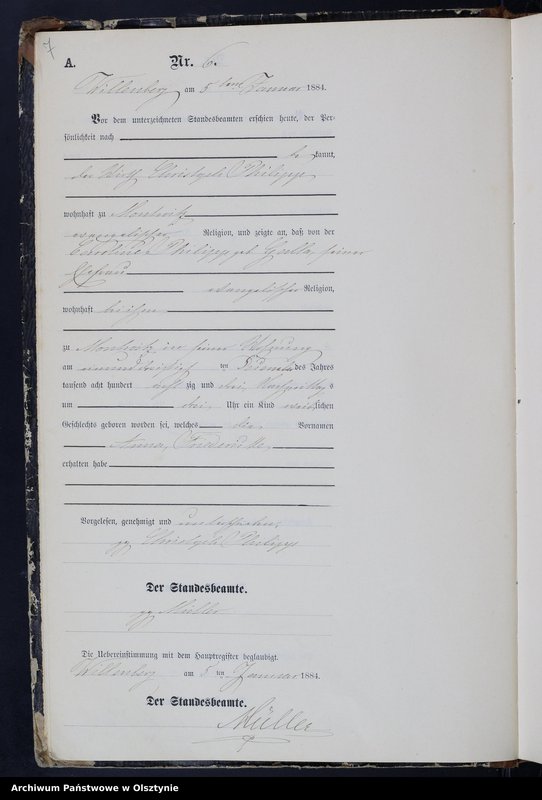 7
A. Nr. 6.
Willenberg am 5ten Januar 1884.
Vor dem unterzeichneten Standesbeamten erschien heute, der Per-
sönlichkeit nach
be kannt,
der Wirth Christoph Philipp
wohnhaft zu
evangelischer Religion, und zeigte an, daß von der
Caroline Philipp geb. seiner
Ehefrau
evangelischer Religion,
wohnhaft bei ihm
zu in seiner Wohnung
am ten des Jahres
tausend acht hundert acht zig und drei Nachmittag s
um drei Uhr ein Kind weib lichen
Geschlechts geboren worden sei, welches die Vornamen
Anna, Friederike
erhalten habe
Vorgelesen, genehmigt und unterschrieben,
gz Christoph Philipp
Der Standesbeamte.
gz Müller
Die Uebereinstimmung mit dem Hauptregister beglaubigt.
Willenberg am 5 ten Januar 1884.
Der Standesbeamte.
Müller
Archiwum Państwowe w Olsztynie